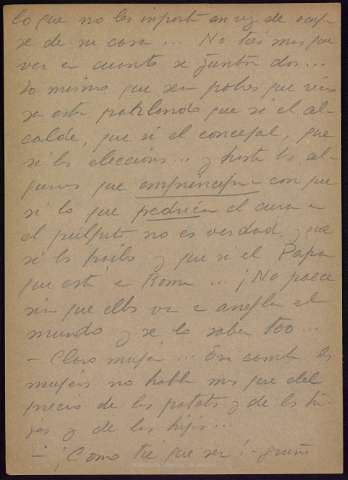 lo que no les importa en vez de ocupar
se de su casa ... No tas mas que
ver en cuanto se juntan dos ...
Lo mismo que sean pobres que
se está que si el al-
calde, que si el concejal, que
si las eleccións .. y hasta hay al-
gunos que emprencipian con que
si lo que pedrica el cura en
el púlpito no es verdad, que
si los frailes y que si el Papa
que está en Roma ... ¡No paece
sino que ellos van a arreglar el
mundo y se lo saben too ...
- Claro mujer ... En cambio las
mujeres no hablan mas que del
precio de las patatas y de los
y de los hijos ...
- ¡Como tié que ser!